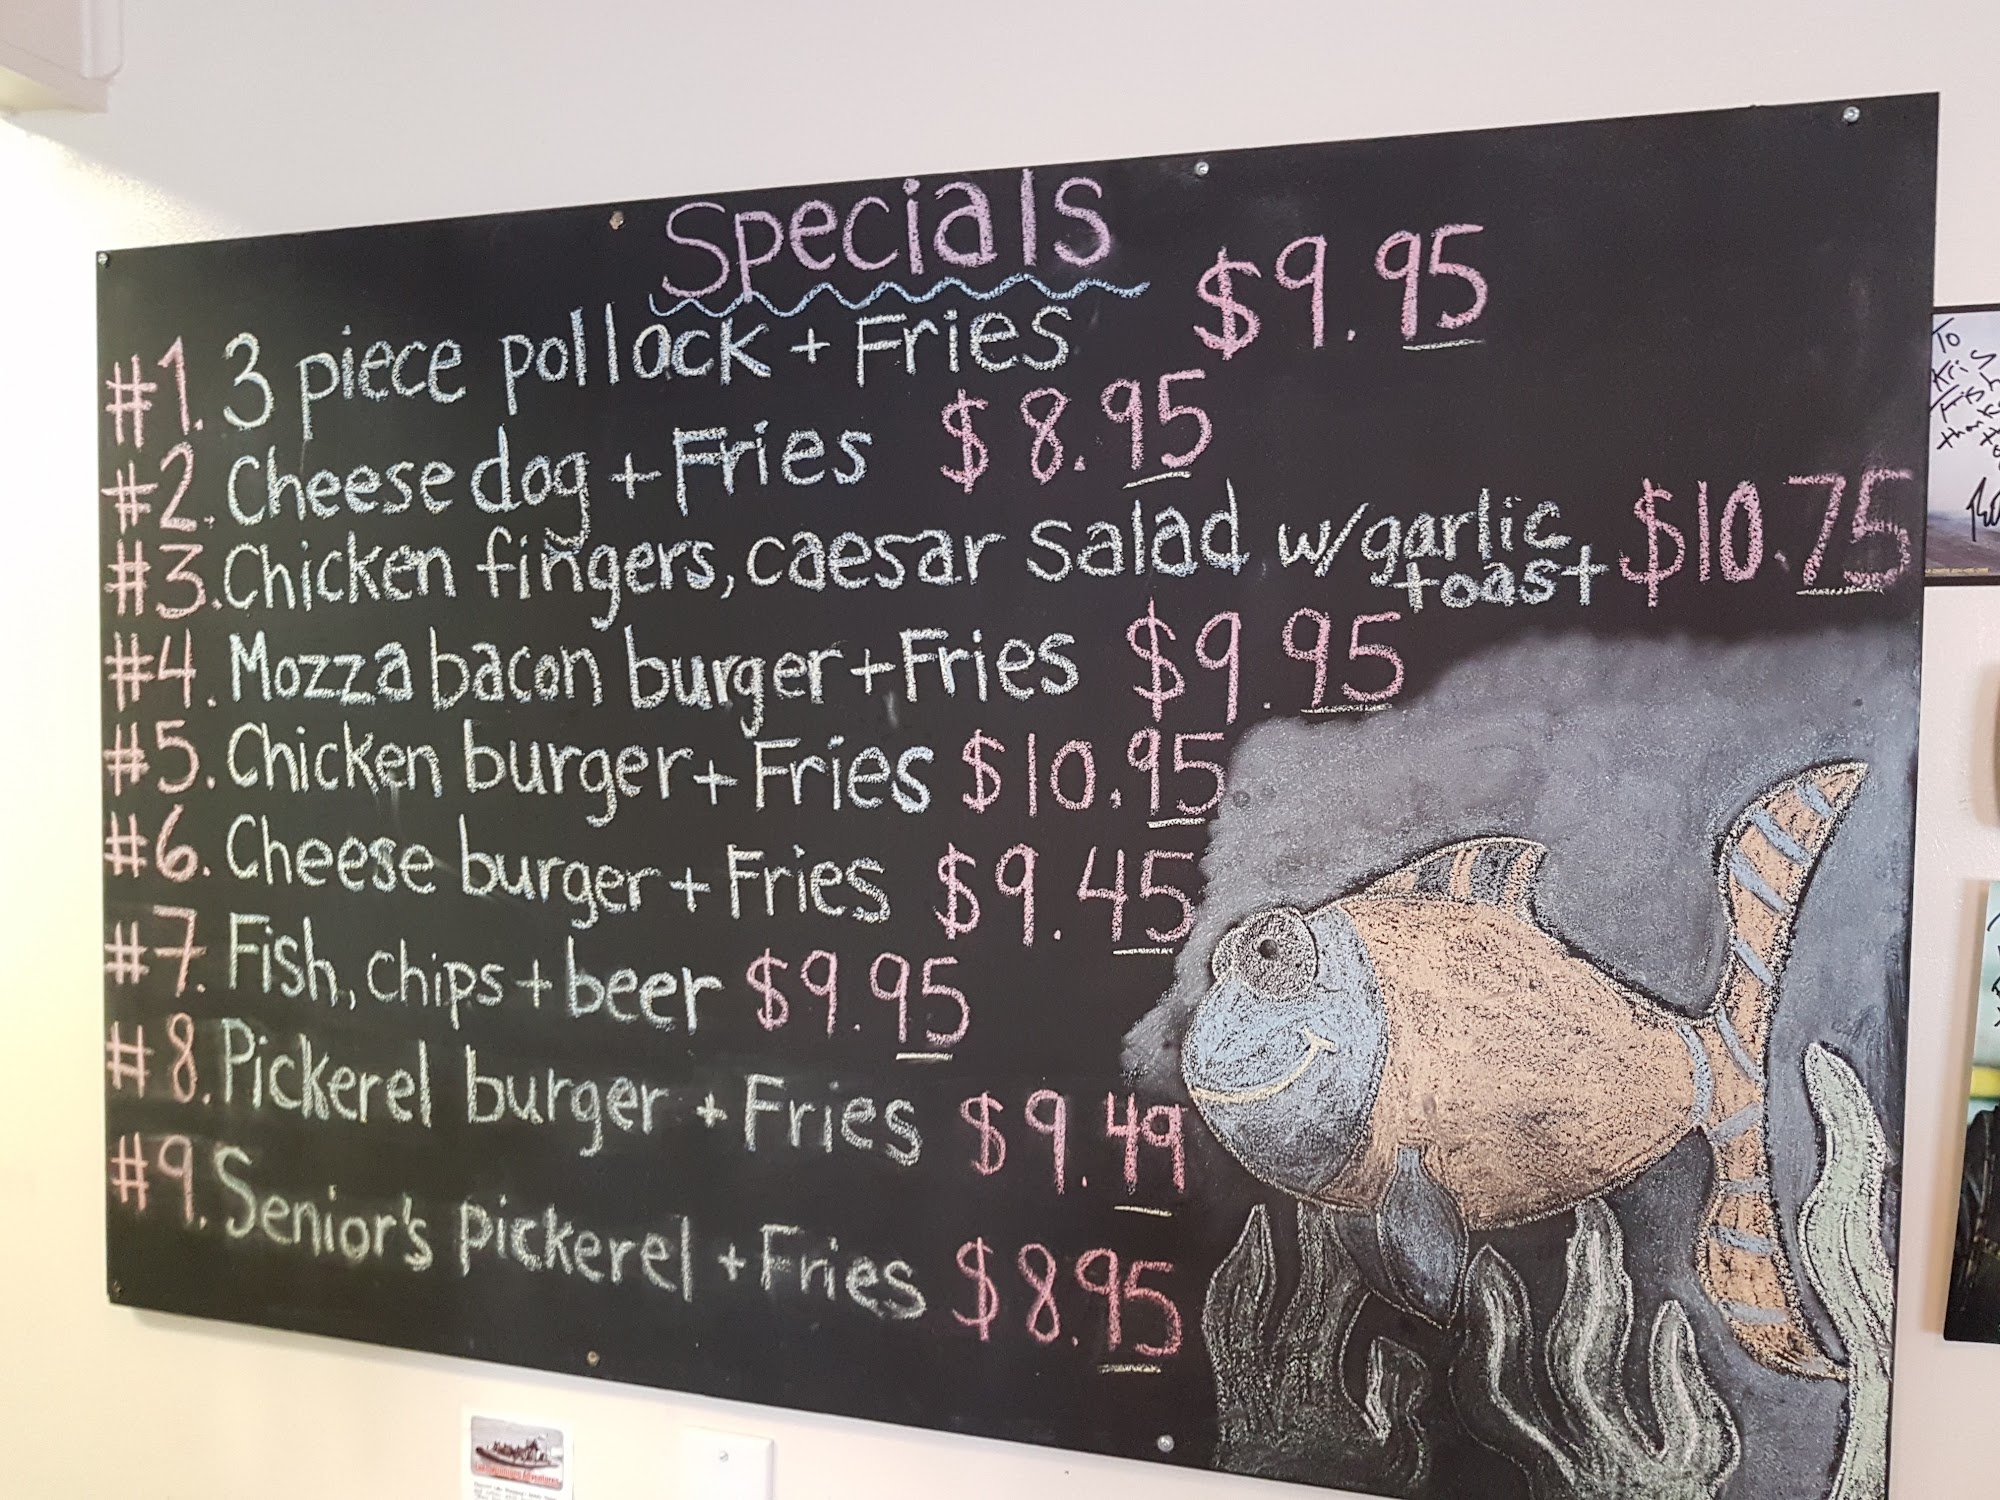 Specials
#1. 3 piece pollock + Fries $9.95
#2. Cheese dog + Fries $8.95
#3. Chicken fingers, caesar salad w/garlic toast $10.75
#4. Mozza bacon burger + Fries $9.95
#5. Chicken burger + Fries $10.95
#6. Cheese burger + Fries $9.45
#7. Fish, chips + beer $9.95
#8. Pickerel burger + Fries $9.49
#9. Senior's pickerel + Fries $8.95
To
Kris